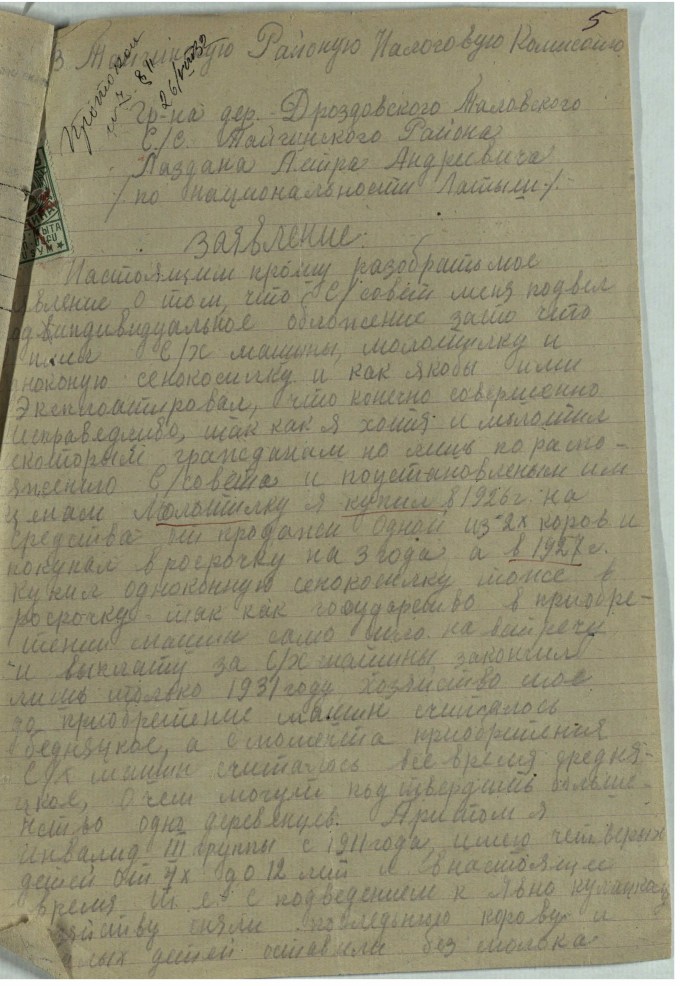 5
В Тайгинскую Районую Налоговую Комисию
Протокол
26/VIII 32
Гр-на дер. Дроздовского Таловского
С/С. Тайгинского Района
Лаздана Петра Андреевича
/ по национальности Латыш /.
Заявление.
Настоящим прошу разобрать мое
явление о том, что С/совет меня подвел
од индивидуальное обложение зато что
имел С/Х машины, молотилку и
ноконую сенокосилку и как якобы ими
Эксплоатировал, что конечно совершенно
исправедливо, так как я хотя и молотил
екоторым гражданам но лишь по распо-
яжению С/совета и поустановленым им
ценам Молотилку я купил в 1926 г. на
средства от продажи одной из 2х коров и
покупал в росрочку на 3 года а в 1927 г.
купил одноконную сенокосилку тоже в
росрочку, так как государство в приобре-
тении машин само шло на встречу
и выплату за С/Х машины закончил
лишь только 1931 году хозяйство мое
до приобретение машин считалось
бедняцкое, а с момента приобретения
С/Х машин считалось все время средня-
цкое, о чем могут подтвердить больше-
нство одно деревенцев. Притом я
Инвалид III группы с 1911 года, имею четверых
детей от 4х до 12 лет и в настоящее
время т. е. с подведением к явно кулацкому
зяйству сняли последнюю корову и
лых детей оставили без молока